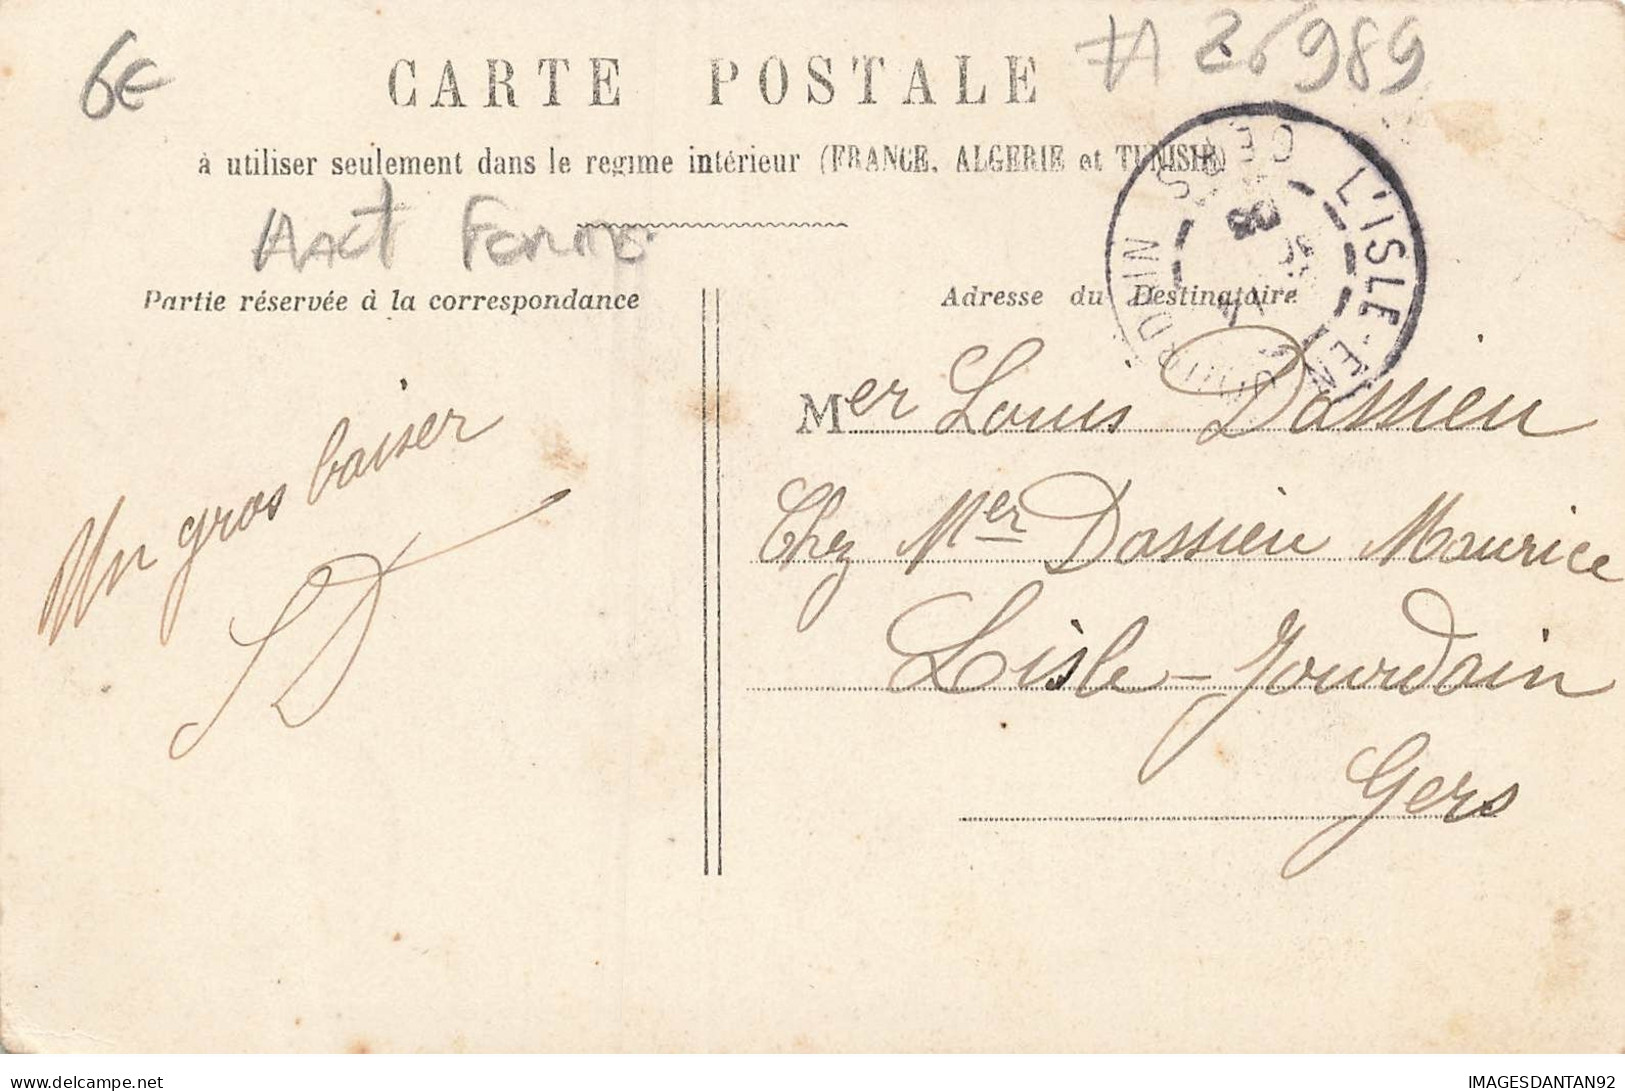 6€
CARTE POSTALE
#A 26989
à utiliser seulement dans le regime intérieur (FRANCE, ALGERIE et TUNISIE)
L'ISLE-EN-JOURDAIN
GERS
08
Partie réservée à la correspondance
Adresse du Destinataire
Un gros baiser
LD
Mer Louis Dassieu
Chez Mer Dassieu Maurice
Lisle-Jourdain
Gers
delcampe.net
IMAGESDANTAN92